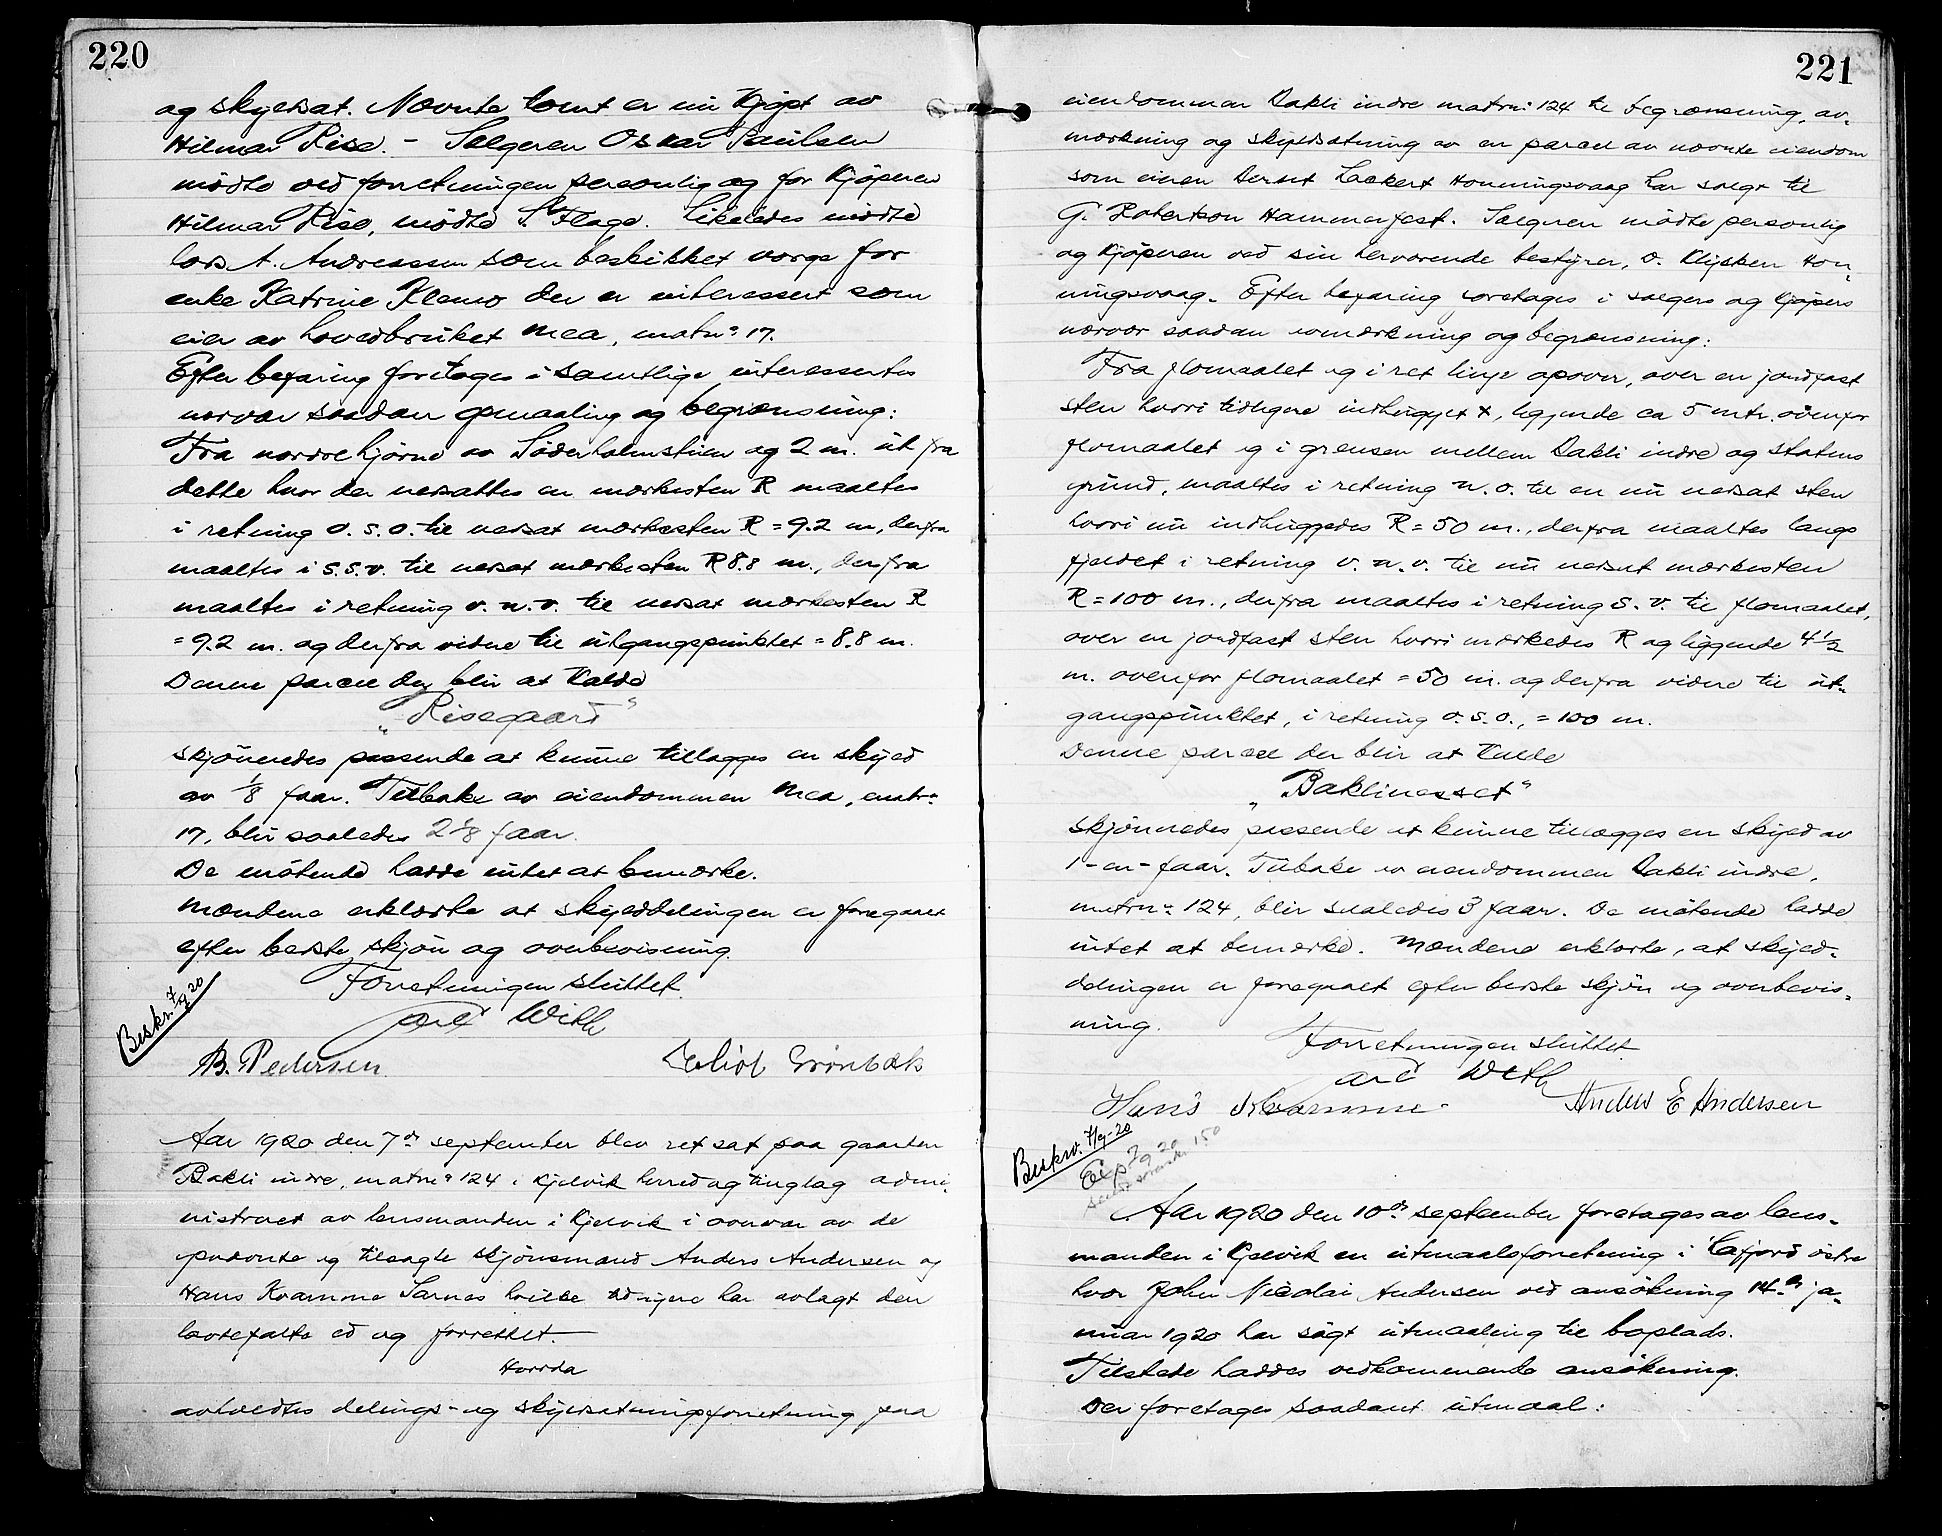 220
og skyldsat. Nævnte tomt er nu kjöpt av
Hilmar Risø. - Selgeren Oskar Paulsen
mödte ved forretningen personlig og for kjöperen
Hilmar Risø, mödte S. Flage. Likeledes mödte
lods A. Andreassen som beskikket værge for
enke Katrine Klemo der er interessert som
eier av hovedbruket Mea, matrn: 17.
Efter befaring foretoges i samtlige interessertes
nærvær saadan opmaaling og begrænsning:
Fra nordre hjörne av Söderholmstuen og 2 m. ut fra
dette hvor der nedsattes en merkesten R maaltes
i retning o.s.o. til nedsat merkesten R = 9.2 m, derfra
maaltes i s.s.v. til nedsat merkesten R 8.8 m., derfra
maaltes i retning v.n.v. til nedsat merkesten R
= 9.2 m. og derfra videre til utgangspunktet = 8.8 m.
Denne parcel der blir at kalde
"Risegaard"
skjönnedes passende at kunne tillægges en skyld
av 1/8 faar. Tilbake av eiendommen Mea, matrn:
17, blir saaledes 2 1/8 faar.
De mötende hadde intet at bemerke.
Mændene erklærte at skylddelingen er foregaaet
efter beste skjön og overbevisning.
Forretningen sluttet.
Beskr. 7/9 20
Carl With
B. Pedersen Grönbæk
Aar 1920 den 7de september blev ret sat paa gaarden
Bakli indre, matrn: 124 i Kjelvik herred og tinglag admi-
nistreret av lensmanden i Kjelvik i overvær av de
opnævnte og tilsagte skjönsmænd Anders Andersen og
Hans Kvamme Sarnes hvilke tidligere har avlagt den
lovbefalte ed og forrettet.
Hvorda
avholdtes delings- og skyldsætningsforretning paa
221
eiendommen Bakli indre matrn: 124 til begrænsning, av-
merkning og skyldsætning av en parcel av nævnte eiendom
som eieren Bernt Lackert Honningsvaag har solgt til
G. Robertson Hammerfest. Selgeren mödte personlig
og kjöperen ved sin herværende bestyrer, O. Klysken Hon-
ningsvaag. Efter befaring foretoges i selgers og kjöpers
nærvær saadan avmerkning og begrænsning:
Fra flomaalet og i ret linje opover, over en jordfast
sten hvori tidligere indhugget x, liggende ca 5 mtr. ovenfor
flomaalet og i grensen mellem Bakli indre og statens
grund, maaltes i retning n.o. til en nu nedsat sten
hvori nu indhuggedes R = 50 m., derfra maaltes langs
fjeldet i retning v.n.v. til nu nedsat merkesten
R = 100 m., derfra maaltes i retning s.v. til flomaalet,
over en jordfast sten hvori merkedes R og liggende 4 1/2
m. ovenfor flomaalet = 50 m. og derfra videre til ut-
gangspunktet, i retning o.s.o., = 100 m.
Denne parcel der blir at kalde
"Baklinesset"
skjönnedes passende at kunne tillægges en skyld av
1-en-faar. Tilbake av eiendommen Bakli indre,
matrn: 124, blir saaledes 3 faar. De mötende hadde
intet at bemerke. Mændene erklærte, at skyld-
delingen er foregaaet efter beste skjön og overbevis-
ning.
Forretningen sluttet
Carl With
Hans Kvamme. Anders E Andersen
Beskrv. 7/9-20
Exp 7/9 20
Aar 1920 den 10de september foretoges av lens-
manden i Kjelvik en utmaalsforretning i Cafjord östre
hvor John Nicolai Andersen ved ansökning 14de ja-
nuar 1920 har sögt utmaaling til boplads.
Tilstede haddes vedkommende ansökning.
Der foretoges saadant utmaal: